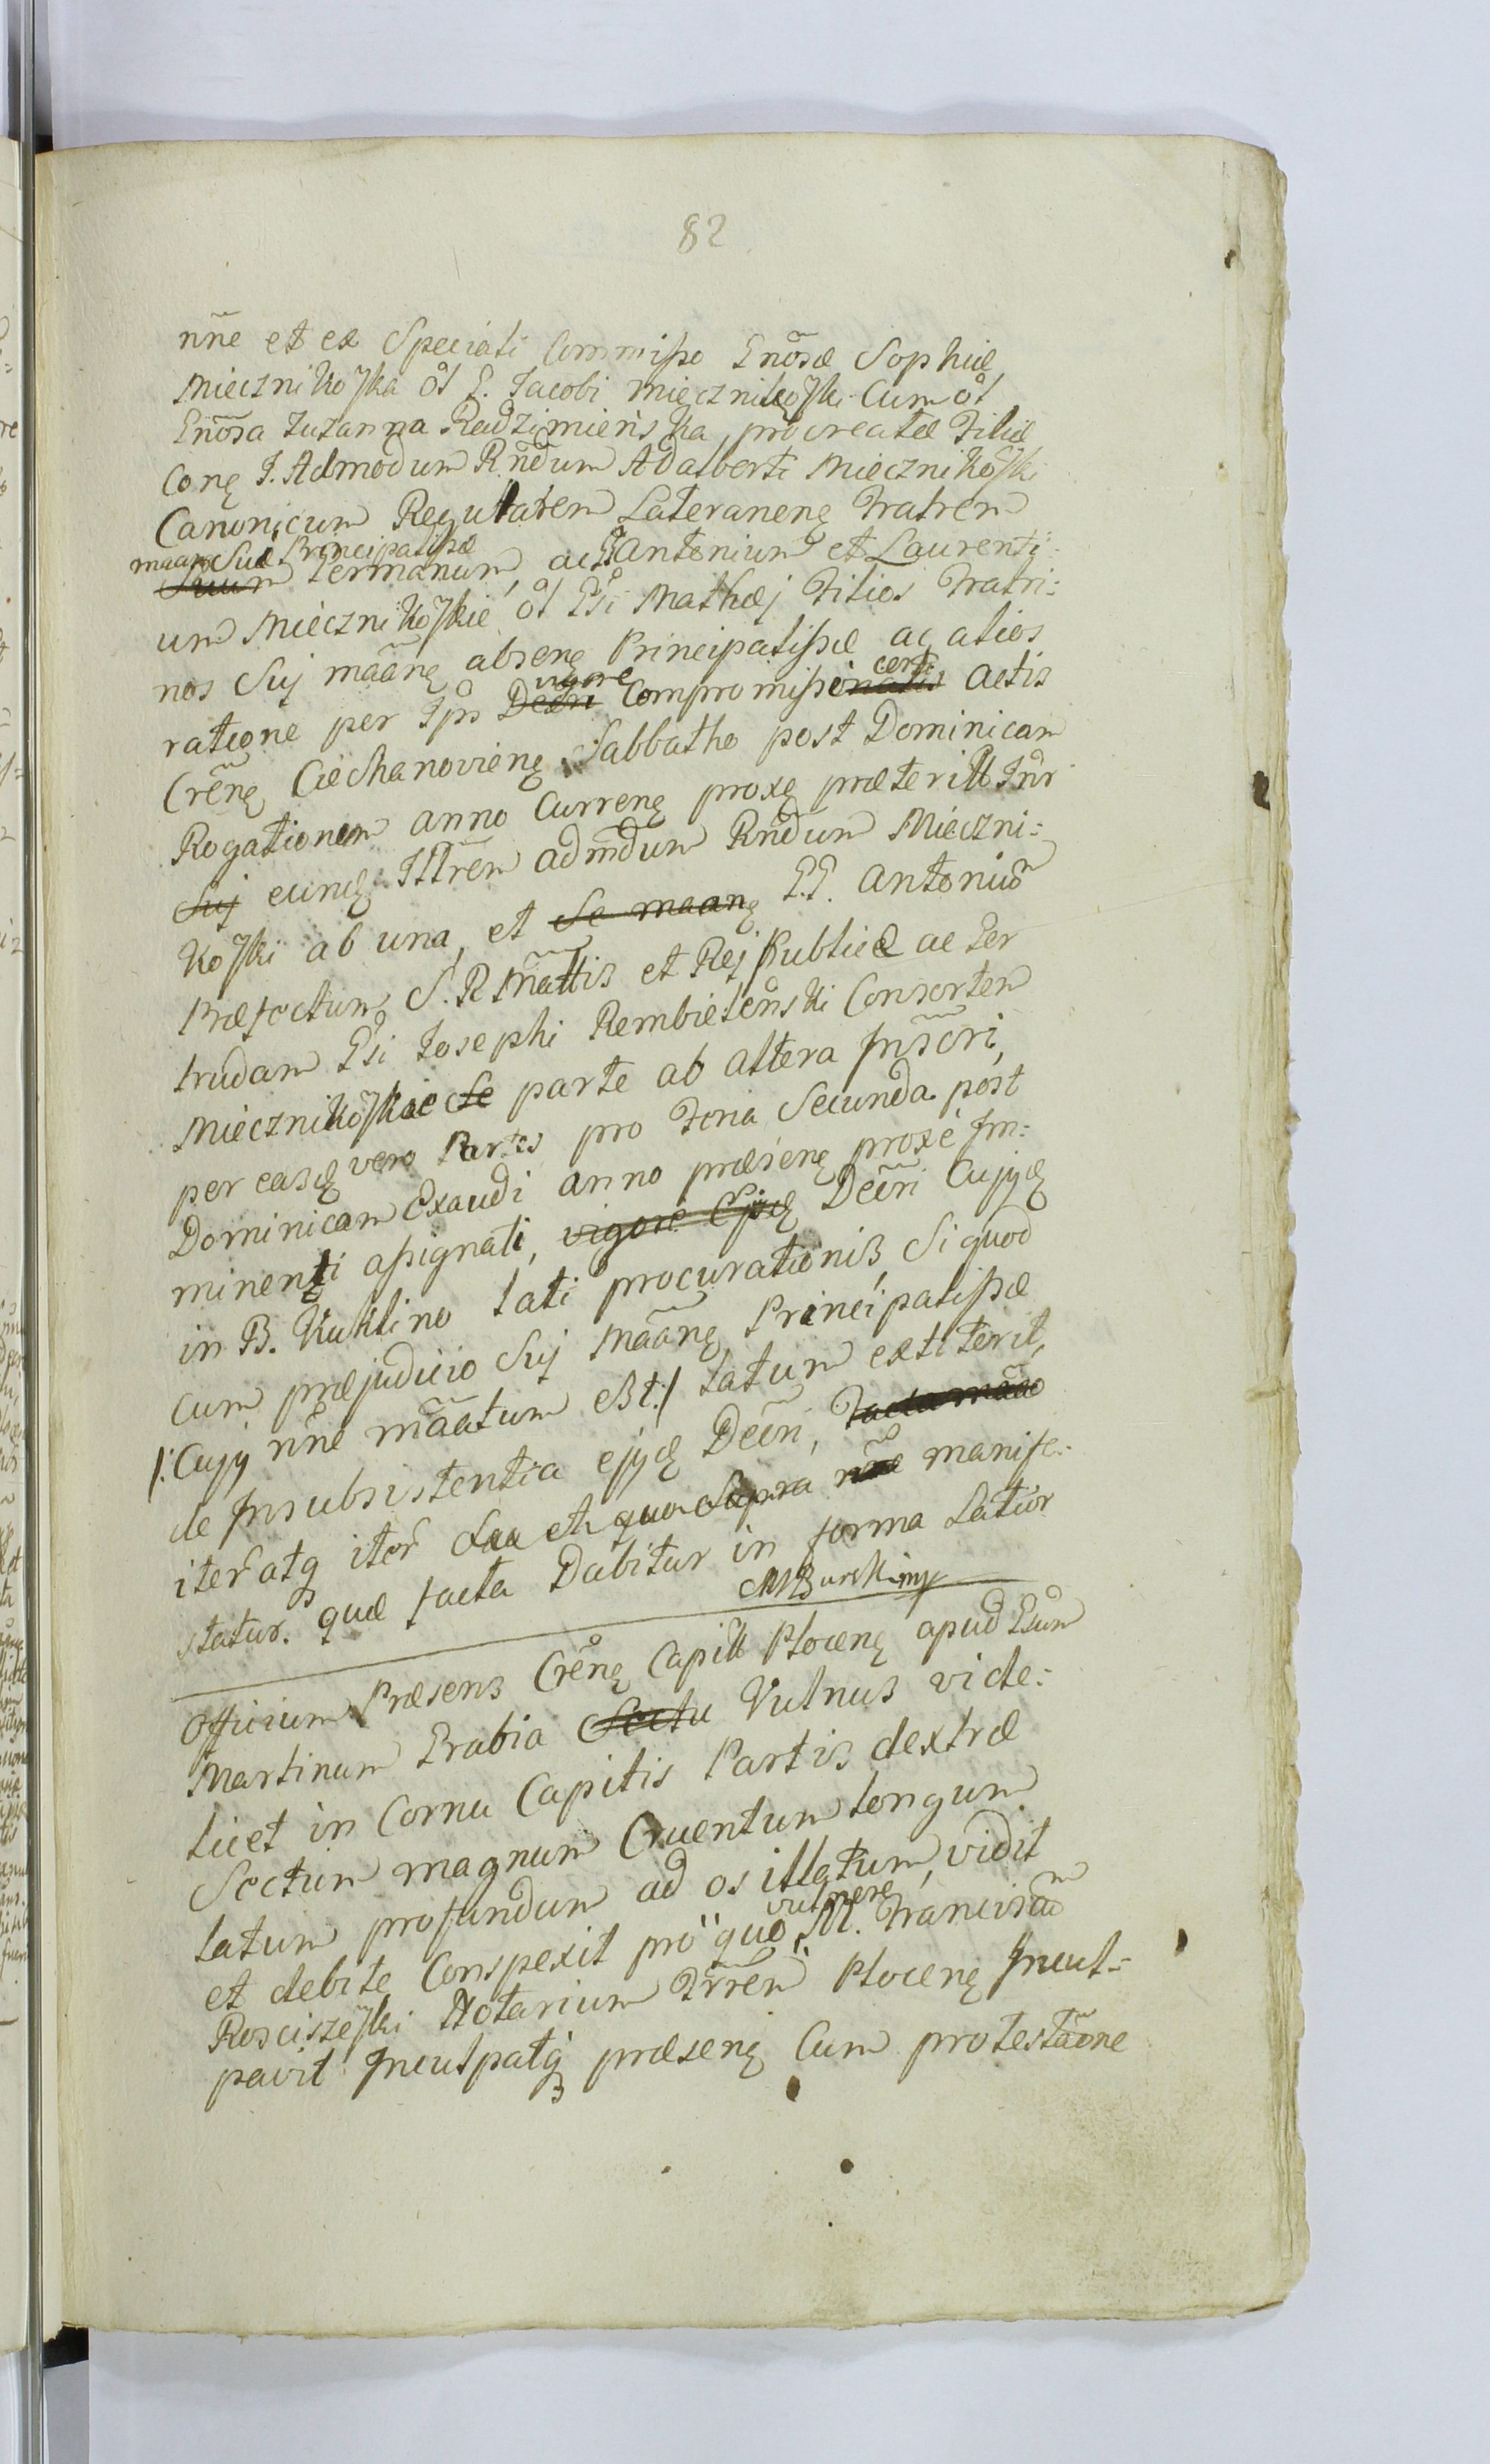 82
nñe et ex Speciali Commisso Gnõsæ Sophiæ
Mieczniko̅ska ol G. Jacobi Mieczniko̅ski Cum ol
Gnõsa Zuzanna Radzimieńska procreatæ Filiæ
Conę J. Admodum Rñdum Adalberti Mieczniko̅ski
Canonicum Regularem Lateranenę Fratrem
maanę Suæ Principalissæ
Suum Germanum, ac G. Antonium et Laurenti:
um Mieczniko̅skie ol Gsi Mathæj Filios Fratri:
nos Suj mãanę absenę Principalissæ ac alios
ratione per Ips Decri vigore Compromissionalis certi Actis
Crẽnę Ciechanovienę Sabbatho post Dominicam
Rogationem anno Currenę proxę præterill Inr
Suj eundę Illrẽm admdum Rñdum Mieczni:
ko̅ski ab una, et Se maanę G.G. Antoniũ
Præfectum S. R. Mãttis et Rej Publicæ ac Ger
trudam Gsi Josephi Rembieleński Consortem
Mieczniko̅skie Se parte ab altera Inscri,
per easdę vero Partes pro Feria Secunda post
Dominicam Exaudi anno præsenę proxe Im:
minenti assignati, vigore Ejsdę Decri Cujsdę
in B. Kuklino lati procurationis, Si quod
cum præjudicio Suj Mãanę Principalissæ
/: Cujs nñe mãatum est :/ latum extiterit,
de Insubsistentia ejsdę Decri, Facta mãao
iter̃ atq iter̃ Sau et quo Supra nñe manife:
statur. quæ facta Dabitur in forma Latior
MBurski mp
Officium Præsens Crẽnę Capitl Plocenę apud Gsum
Martinum Grabia Sectu Vulnus vide:
licet in Cornu Capitis Partis dextræ
Sectum magnum Cruentum longum
latum profundum ad os illatum, vidit
et debite Conspexit pro quo vulnere M. Franciscũ
Rosciszeski Notarium Trrẽm Plocenę Incul:
pavit Inculpatq præsenę Cum protestãone